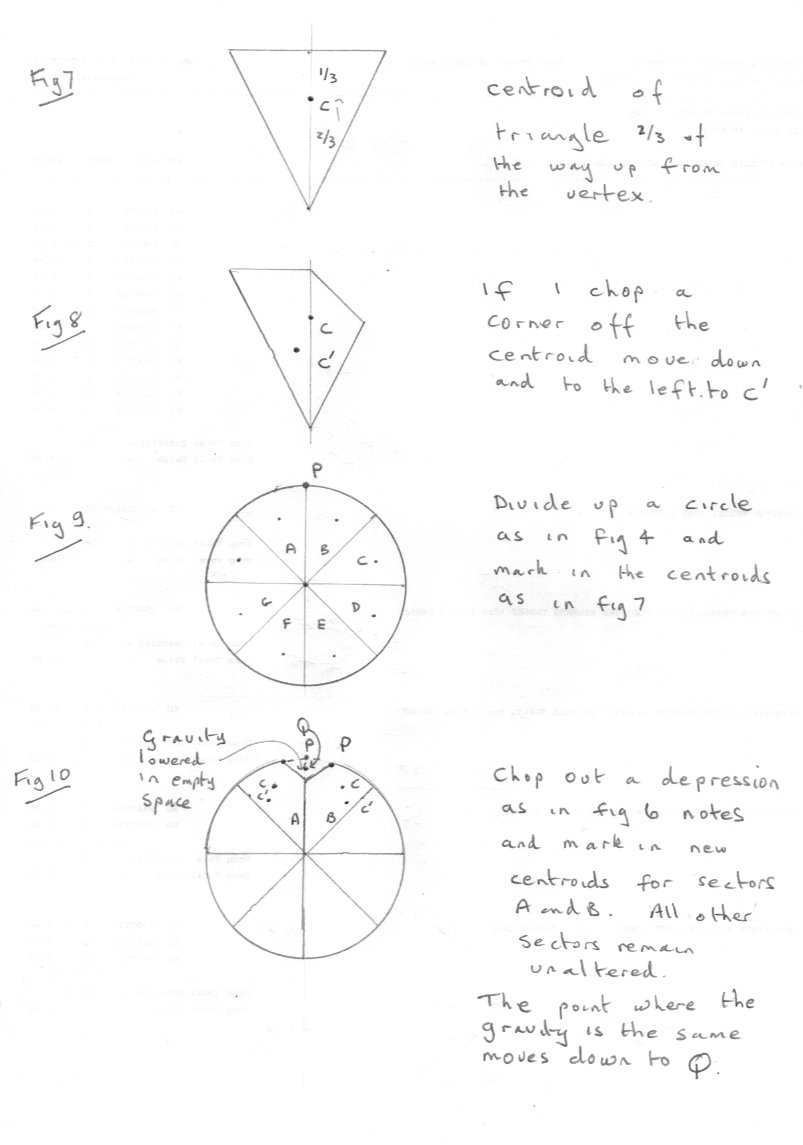 Fig 7
1/3
C
2/3
centroid of
triangle 2/3 of
the way up from
the vertex.
Fig 8
C
C'
If I chop a
corner off the
centroid move down
and to the left to C'
Fig 9.
P
A B
C
G D
F E
Divide up a circle
as in fig 4 and
mark in the centroids
as in fig 7
Fig 10
Gravity
lowered
in empty
space
Q
P P
C C
C' C'
A B
Chop out a depression
as in fig 6 notes
and mark in new
centroids for sectors
A and B. All other
sectors remain
unaltered.
The point where the
gravity is the same
moves down to Q.